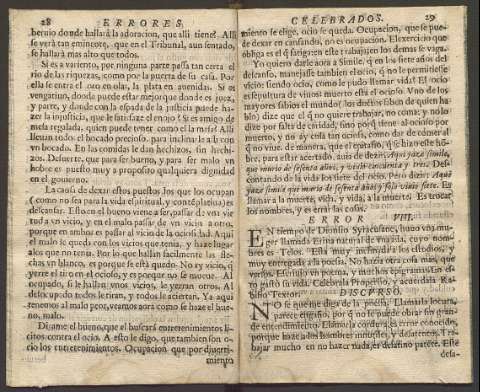 28 ERRORES
beruio donde hallará la adoracion, que alli tiene. Alli
se verá tan eminente, que en el Tribunal, aun sentado,
se hallará mas alto que todos.
Si es auariento, por ninguna parte passa tan cerca el
rio de las riquezas, como por la puerta de su casa. Por
ella se entra el oro en ola, la plata en auenidas. Si es
vengatiuo, donde puede estar mejor que donde es juez,
y parte, y donde con la espada de la justicia puede ha-
zer la injusticia, que le satisfaze el enojo? Si es amigo de
mesa regalada, quien puede tener como el la mesa? Alli
lleuan todo el bocado precioso, para inclinarle a él con
vn bocado. En las comidas le dan hechizos, sin hechi-
zos. Desuerte, que para ser bueno, y para ser malo vn
hombre es puesto muy a proposito qualquiera dignidad
en el gouierno.
La causa de dexar estos puestos los que los ocupan
(como no sea para la vida espiritual, y contéplatiua) es
descansar. Esto en el bueno viene a ser, passar de vna vir
tud a vn vicio, y en el malo passar de vn vicio a otro,
porque en ambos es passar al vicio de la ociosidad. Aqui
el malo se queda con los vicios que tenia, y haze lugar
a los que no tenia. Por lo que hallan facilmente las fle-
chas vn blanco, es porque se está quedo. No ay vicio, q̃
yerre el tiro en el ocioso, y es porque no se mueue. Al
ocupado, si le hallan vnos vicios, le yerran otros. Al
desocupado todos le tiran, y todos le aciertan. Ya aqui
tenemos al malo peor, veamos aora como se haze el bue-
no, malo.
Dirame el bueno, que el buscará entretenimientos li-
citos contra el ocio. A esto le digo, que tambien son o-
cio los entretenimientos. Ocupacion que por diuerti-
miento
CELEBRADOS. 29
miento se elige, ocio se queda. Ocupacion, que se pue-
de dexar en cansando, no es ocupacion. El exercicio que
obliga es el q̃ fatiga: en este trabajo los demas se vaga.
Yo quiero darle aora a Simile, q̃ en los siete años del
descanso, manejasse tambien el ocio, q̃ no le permitiesse
vicio siendo ocio, como le pudo llamar vida? El ocio
es sepultura de viuos: muerto está el ocioso. Vno de los
mayores sabios el mundo (los doctos saben de quien ha-
blo) dize que el q̃ no quiere trabajar, no coma: y no lo
dize por falta de caridad, sino porq̃ tiene al ocioso por
muerto, y no ay cosa tan ociosa, como dar de comer al
q̃ no viue. de manera, que el epitafio, q̃ se hizo este hõ-
bre, para estar acertado, auia de dezir. Aqui yaze Simile,
que murio de setenta años, y viuio cincuenta y tres. Des-
contando de la vida los siete del ocio. Pero dezir: Aqui
yaze Simile que murio de setenta años y solo viuio siete. Es
llamar a la muerte, vida, y vida, a la muerte. Es trocar
los nombres, y es errar las cosas.
ERROR VIII.
EN tiempo de Dionisio Syracusano, huuo vna mu-
ger llamada Erina natural de vna isla, cuyo nom-
bre es Telos. Era muy inclinada a los estudios, y
muy entregada a la poesia. No hazia otra cosa mas, que
versos. Escriuio vn poema, y muchos epigramas. En es-
to gastó su vida. Celebrala Propercio, y acuerdala Ra-
bisio Textor.
DISCVRSO.
NO sè que me diga de la poesia. Llamarla locura,
parece engaño, por q̃ no se puede obrar sin gran-
de entendimiento. Llamarla cordura, es error conocido,
porque haze a los hombres inutiles, y desatentos. Tra-
bajar mucho en no hazer nada, es desatino parece. Este
desa-